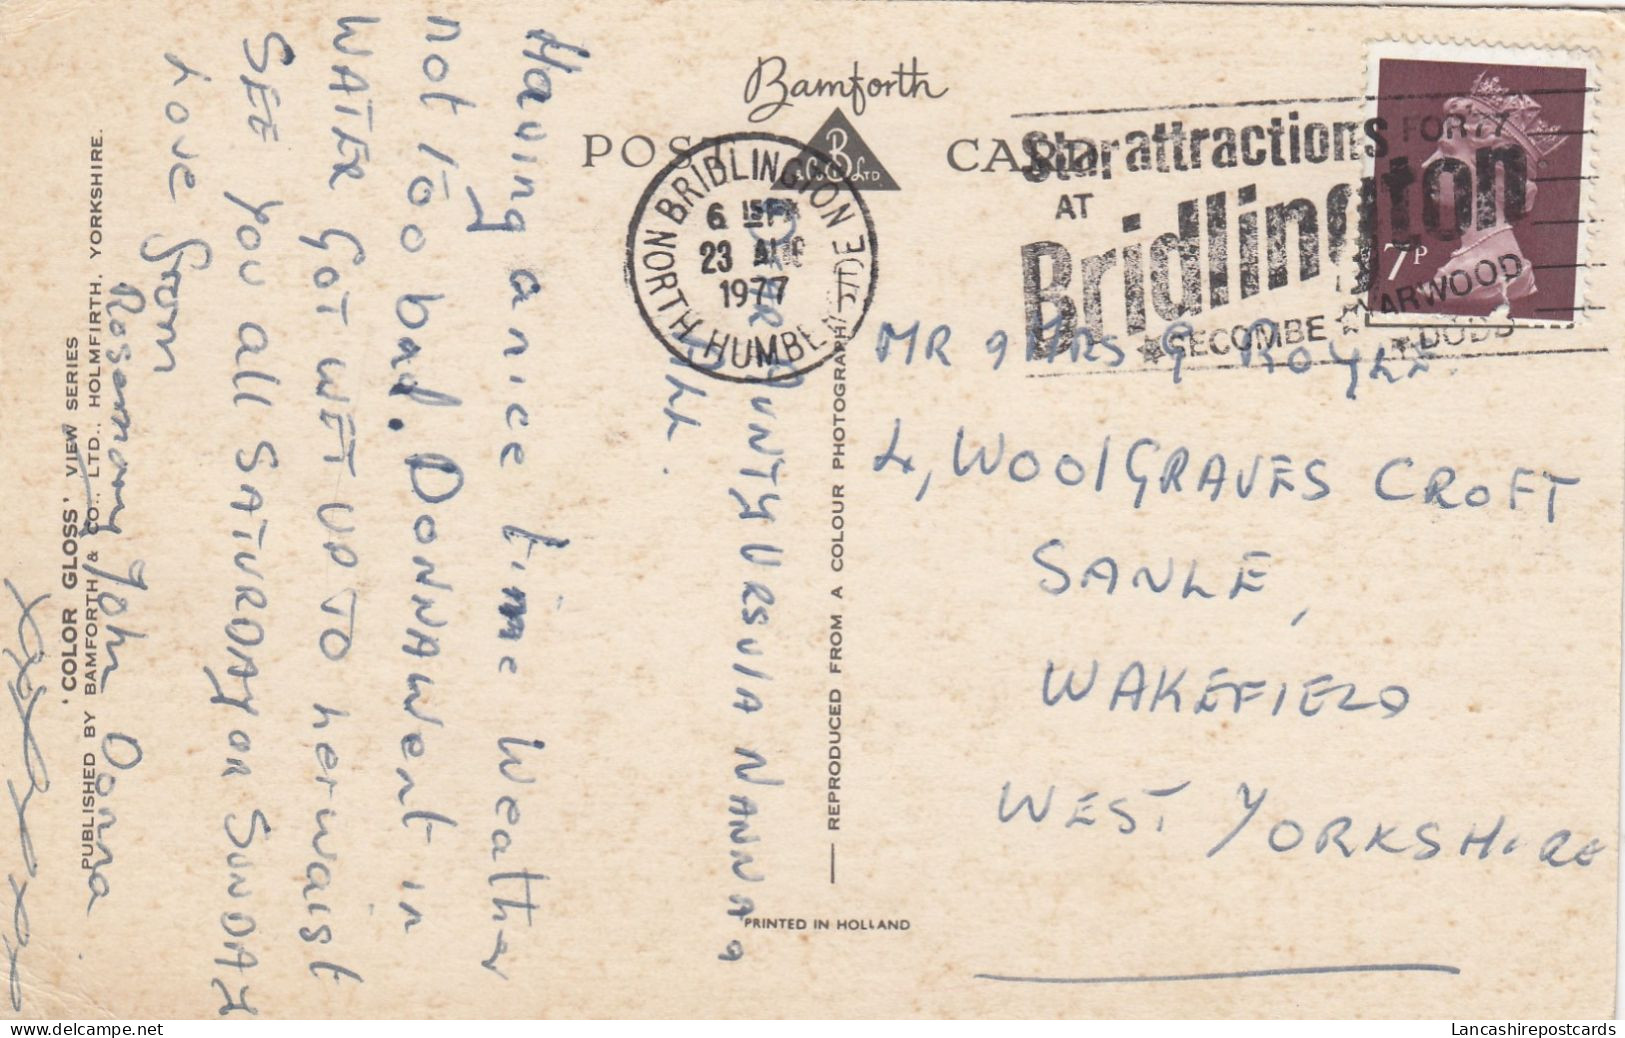 Bamforth
POST CARD
B
& Co LTD.
BRIDLINGTON
NORTH HUMBERSIDE
23 AUG
1977
Star attractions FOR 77
AT
Bridlington
SECOMBE YARWOOD
DODD
7P
DEAR AUNTY URSULA NANNA &
BILL.
Having a nice time Weather
not Too bad. DONNA Went in
WATER GOT WET UP TO her waist
SEE YOU all SATURDAY or SUNDAY
Love From
Rosemary John Donna
MR & MRS G ROYLE
4, WOOLGRAVES CROFT
SANLE,
WAKEFIELD
WEST YORKSHIRE
REPRODUCED FROM A COLOUR PHOTOGRAPH
PRINTED IN HOLLAND
'COLOR GLOSS' VIEW SERIES
PUBLISHED BY BAMFORTH & CO., LTD., HOLMFIRTH, YORKSHIRE.
Lancashirepostcards